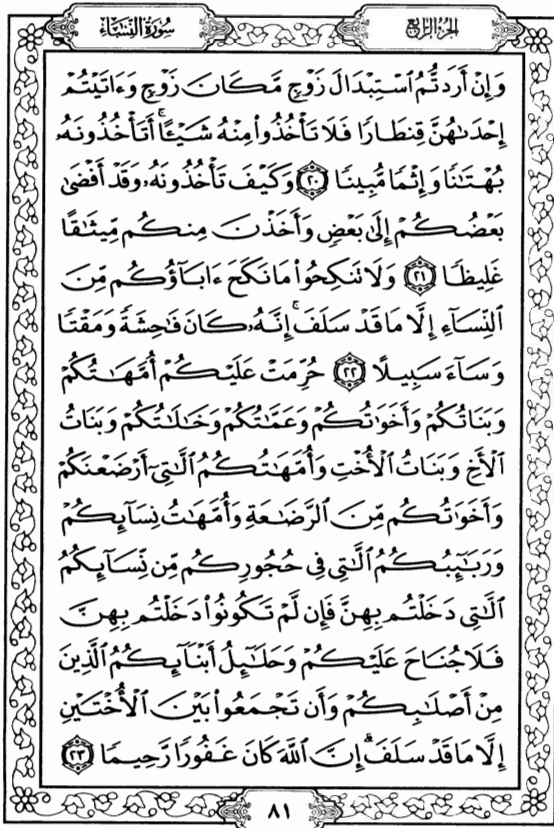 سُورَةُ النِّسَاءِ
الجُزْءُ الرَّابِعُ
وَإِنْ أَرَدتُّمُ ٱسْتِبْدَالَ زَوْجٍ مَّكَانَ زَوْجٍ وَءَاتَيْتُمْ
إِحْدَىٰهُنَّ قِنطَارًا فَلَا تَأْخُذُوا۟ مِنْهُ شَيْـًٔا ۚ أَتَأْخُذُونَهُۥ
بُهْتَٰنًا وَإِثْمًا مُّبِينًا ٢٠ وَكَيْفَ تَأْخُذُونَهُۥ وَقَدْ أَفْضَىٰ
بَعْضُكُمْ إِلَىٰ بَعْضٍ وَأَخَذْنَ مِنكُم مِّيثَٰقًا
غَلِيظًا ٢١ وَلَا تَنكِحُوا۟ مَا نَكَحَ ءَابَآؤُكُم مِّنَ
ٱلنِّسَآءِ إِلَّا مَا قَدْ سَلَفَ ۚ إِنَّهُۥ كَانَ فَٰحِشَةً وَمَقْتًا
وَسَآءَ سَبِيلًا ٢٢ حُرِّمَتْ عَلَيْكُمْ أُمَّهَٰتُكُمْ
وَبَنَاتُكُمْ وَأَخَوَٰتُكُمْ وَعَمَّٰتُكُمْ وَخَٰلَٰتُكُمْ وَبَنَاتُ
ٱلْأَخِ وَبَنَاتُ ٱلْأُخْتِ وَأُمَّهَٰتُكُمُ ٱلَّٰتِىٓ أَرْضَعْنَكُمْ
وَأَخَوَٰتُكُم مِّنَ ٱلرَّضَٰعَةِ وَأُمَّهَٰتُ نِسَآئِكُمْ
وَرَبَٰٓئِبُكُمُ ٱلَّٰتِى فِى حُجُورِكُم مِّن نِّسَآئِكُمُ
ٱلَّٰتِى دَخَلْتُم بِهِنَّ فَإِن لَّمْ تَكُونُوا۟ دَخَلْتُم بِهِنَّ
فَلَا جُنَاحَ عَلَيْكُمْ وَحَلَٰٓئِلُ أَبْنَآئِكُمُ ٱلَّذِينَ
مِنْ أَصْلَٰبِكُمْ وَأَن تَجْمَعُوا۟ بَيْنَ ٱلْأُخْتَيْنِ
إِلَّا مَا قَدْ سَلَفَ ۗ إِنَّ ٱللَّهَ كَانَ غَفُورًا رَّحِيمًا ٢٣
٨١